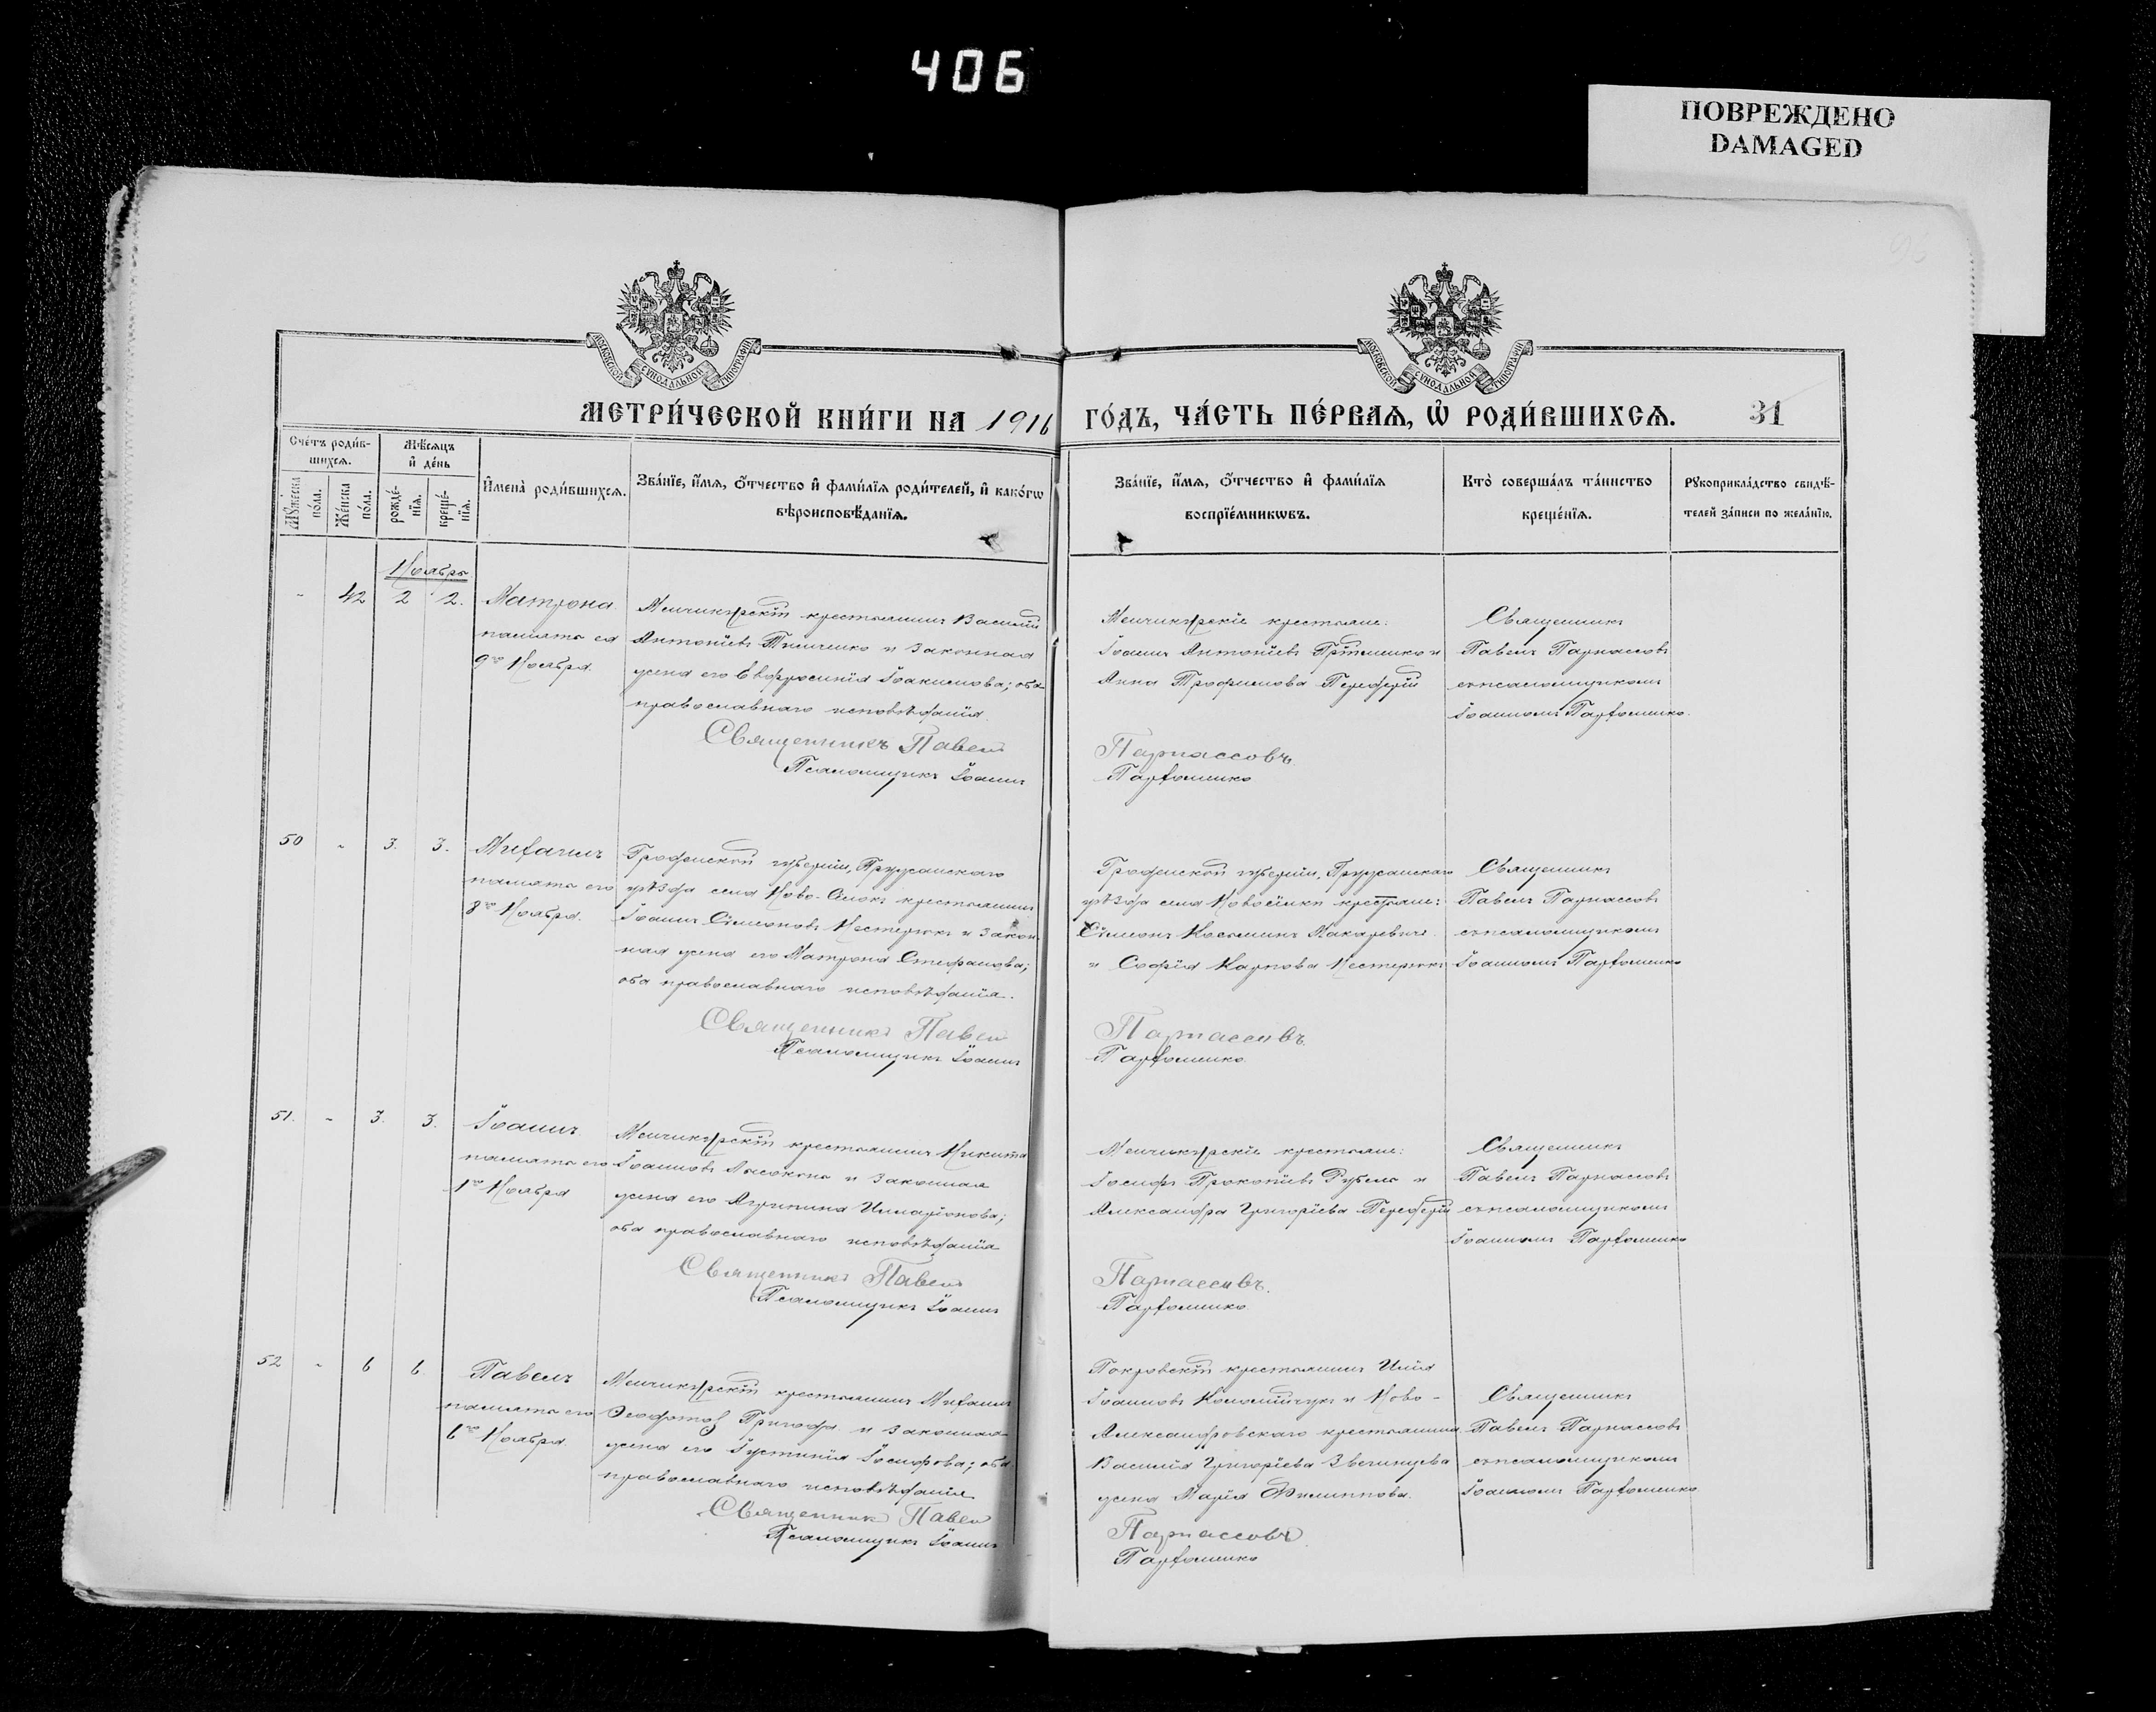 406
ПОВРЕЖДЕНО
DAMAGED
МОСКОВСКОЙ СѴНОДАЛЬНОЙ ТИПОГРАФІИ
МОСКОВСКОЙ СѴНОДАЛЬНОЙ ТИПОГРАФІИ
МЕТРИ́ЧЕСКОЙ КНИ́ГИ НА 1916 ГО́ДЪ, ЧА́СТЬ ПЕ́РВАѦ, Ѿ РОДИ́ВШИХСѦ. 31
Сче́тъ роди́в-
шихсѧ.
Мѣ́сѧцъ
и҆ де́нь
Мꙋ́жеска
по́ла.
Же́нска
по́ла.
рожде́-
нїѧ.
креще́-
нїѧ.
И҆мена̀ роди́вшихсѧ.
Зва́нїе, и҆́мѧ, ѻ҆́тчество и҆ фами́лїѧ роди́телей, и҆ како́гѡ
вѣроисповѣ́данїѧ.
Зва́нїе, и҆́мѧ, ѻ҆́тчество и҆ фами́лїѧ
воспрїе́мникѡвъ.
Кто̀ соверша́лъ та́инство
креще́нїѧ.
Рꙋкоприкла́дство свидѣ́-
телей за́писи по жела́нїю.
Ноябрь
- 42 2 2.
Матрона.
память ея
9го Ноября.
крестьянинъ Василій
Антоніевъ и законная
жена его Евфросинія Іоакимова; оба
православнаго исповѣданія.
Священникъ Павелъ
Псаломщикъ Іоаннъ
крестьяне:
Іоаннъ Антоніевъ и
Анна Трофимова
Парнассовъ
Парфоменко
Священникъ
Павелъ Парнассовъ
съ псаломщикомъ
Іоанномъ Парфоменко.
50 - 3. 3.
Михаилъ
память его
8го Ноября.
Гродненской губерніи, Пружанскаго
уѣзда села крестьянинъ
Іоаннъ Сѵмеоновъ Нестерукъ и закон-
ная жена его Матрона Стефанова;
оба православнаго исповѣданія.
Священникъ Павелъ
Псаломщикъ Іоаннъ
Гродненской губерніи, Пружанскаго
уѣзда села крестьяне:
Сѵмеонъ Косьминъ Макаревичъ
и Софія Карпова Нестерукъ
Парнассовъ
Парфоменко
Священникъ
Павелъ Парнассовъ
съ псаломщикомъ
Іоанномъ Парфоменко
51. - 3. 3.
Іоаннъ
память его
1го Ноября
крестьянинъ Никита
Іоанновъ и законная
жена его Агрипина Иларіонова;
оба православнаго исповѣданія
Священникъ Павелъ
Псаломщикъ Іоаннъ
крестьяне:
Іосифъ Прокопіевъ и
Александра Григоріева
Парнассовъ.
Парфоменко
Священникъ
Павелъ Парнассовъ
съ псаломщикомъ
Іоанномъ Парфоменко
52 - 6 6
Павелъ
память его
6го Ноября.
крестьянинъ Михаилъ
и законная
жена его Іустинія Іосифова; оба
православнаго исповѣданія
Священникъ Павелъ
Псаломщикъ Іоаннъ
Покровскій крестьянинъ Илія
Іоанновъ и Ново-
Александровскаго крестьянина
Василія Григоріева Звегинцева
жена Марія Филиппова.
Парнассовъ
Парфоменко
Священникъ
Павелъ Парнассовъ
съ псаломщикомъ
Іоанномъ Парфоменко